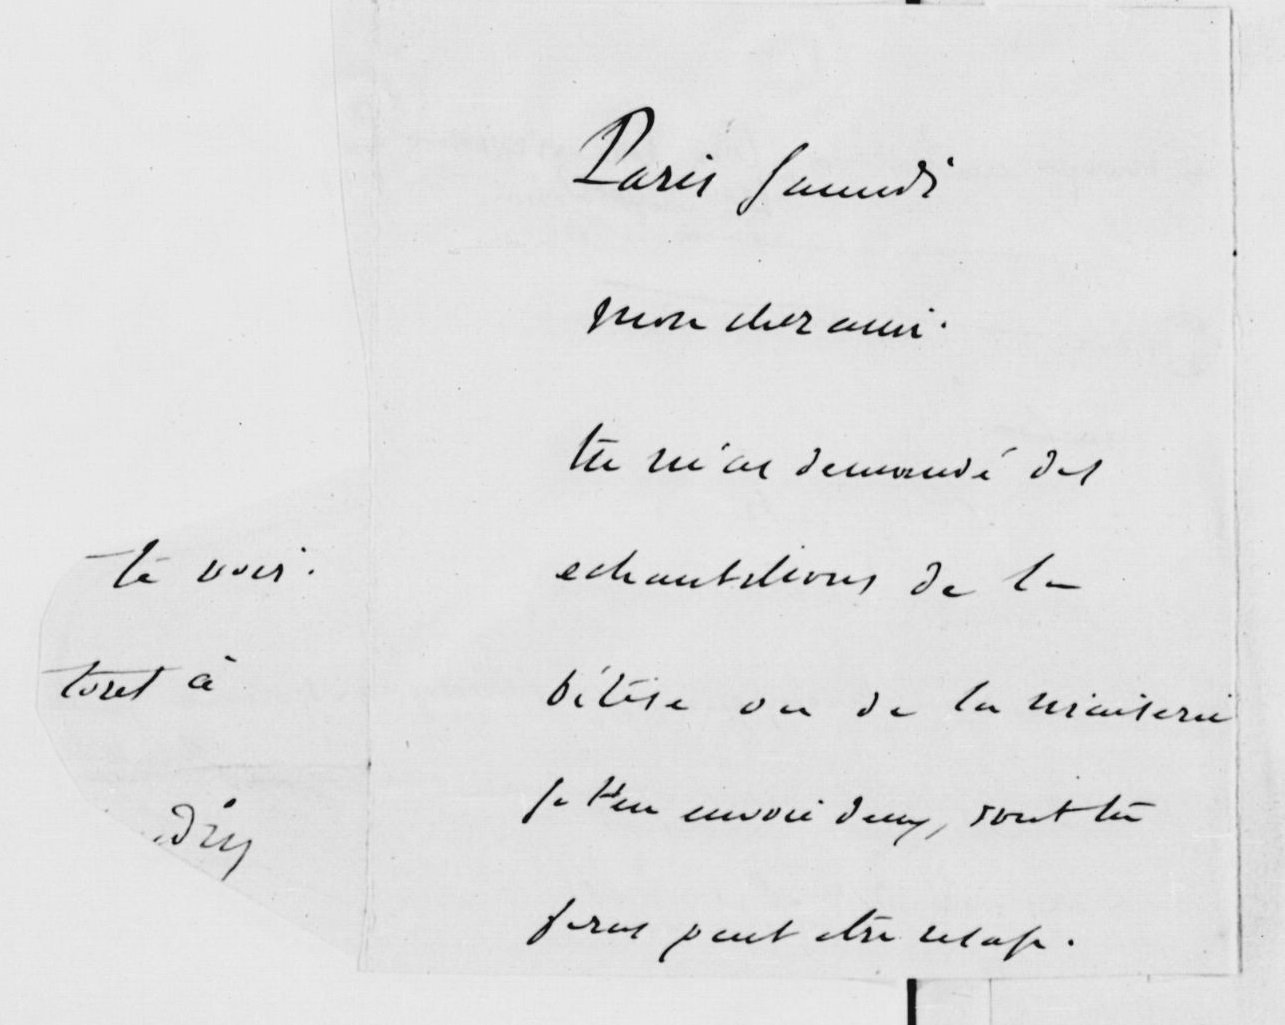 Paris Samedi
mon cher ami.
tu m'as demandé des
echantillons de la
bétise ou de la niaiserie
je t'en envoie deux, dont tu
feras peut etre usage.
te voir.
tout à